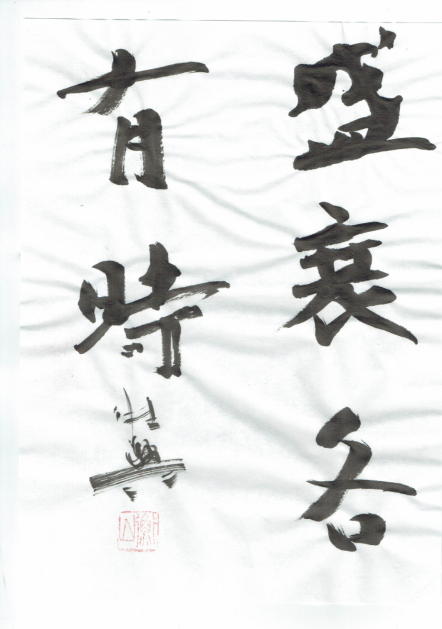 盛衰各
有時